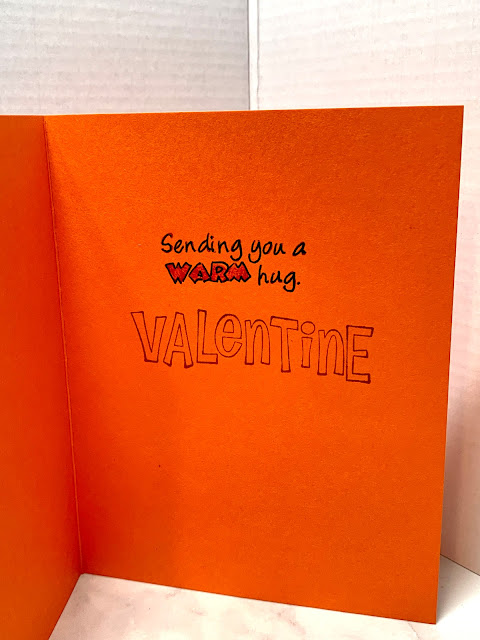 Sending you a
WARM hug.
VALenTinE